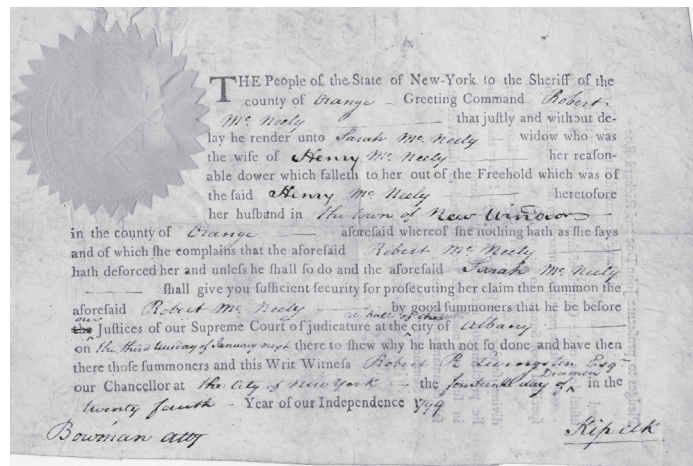 THE People of the State of New-York to the Sheriff of the
county of Orange — Greeting Command Robert
Mc Neely — that juſtly and without de-
lay he render unto Sarah Mc Neely — widow who was
the wife of Henry Mc Neely — her reaſon-
able dower which falleth to her out of the Freehold which was of
the ſaid Henry Mc Neely — heretofore
her huſband in the town of New Windsor —
in the county of Orange — aforeſaid whereof ſhe nothing hath as ſhe ſays
and of which ſhe complains that the aforeſaid Robert Mc Neely —
hath deforced her and unleſs he ſhall ſo do and the aforeſaid Sarah Mc Neely
— ſhall give you ſufficient ſecurity for proſecuting her claim then ſummon the
aforeſaid Robert Mc Neely — by good ſummoners that he be before
our the Juſtices of our Supreme Court of judicature at the city of Albany —
on the third tuesday of January next there to ſhew why he hath not ſo done and have then
there thoſe ſummoners and this Writ Witneſs Robert R Livingston Esqr
our Chancellor at the City of New York — the fourteenth day of in the
twenty fourth — Year of our Independence 1799
Bowman atty
Kip clk